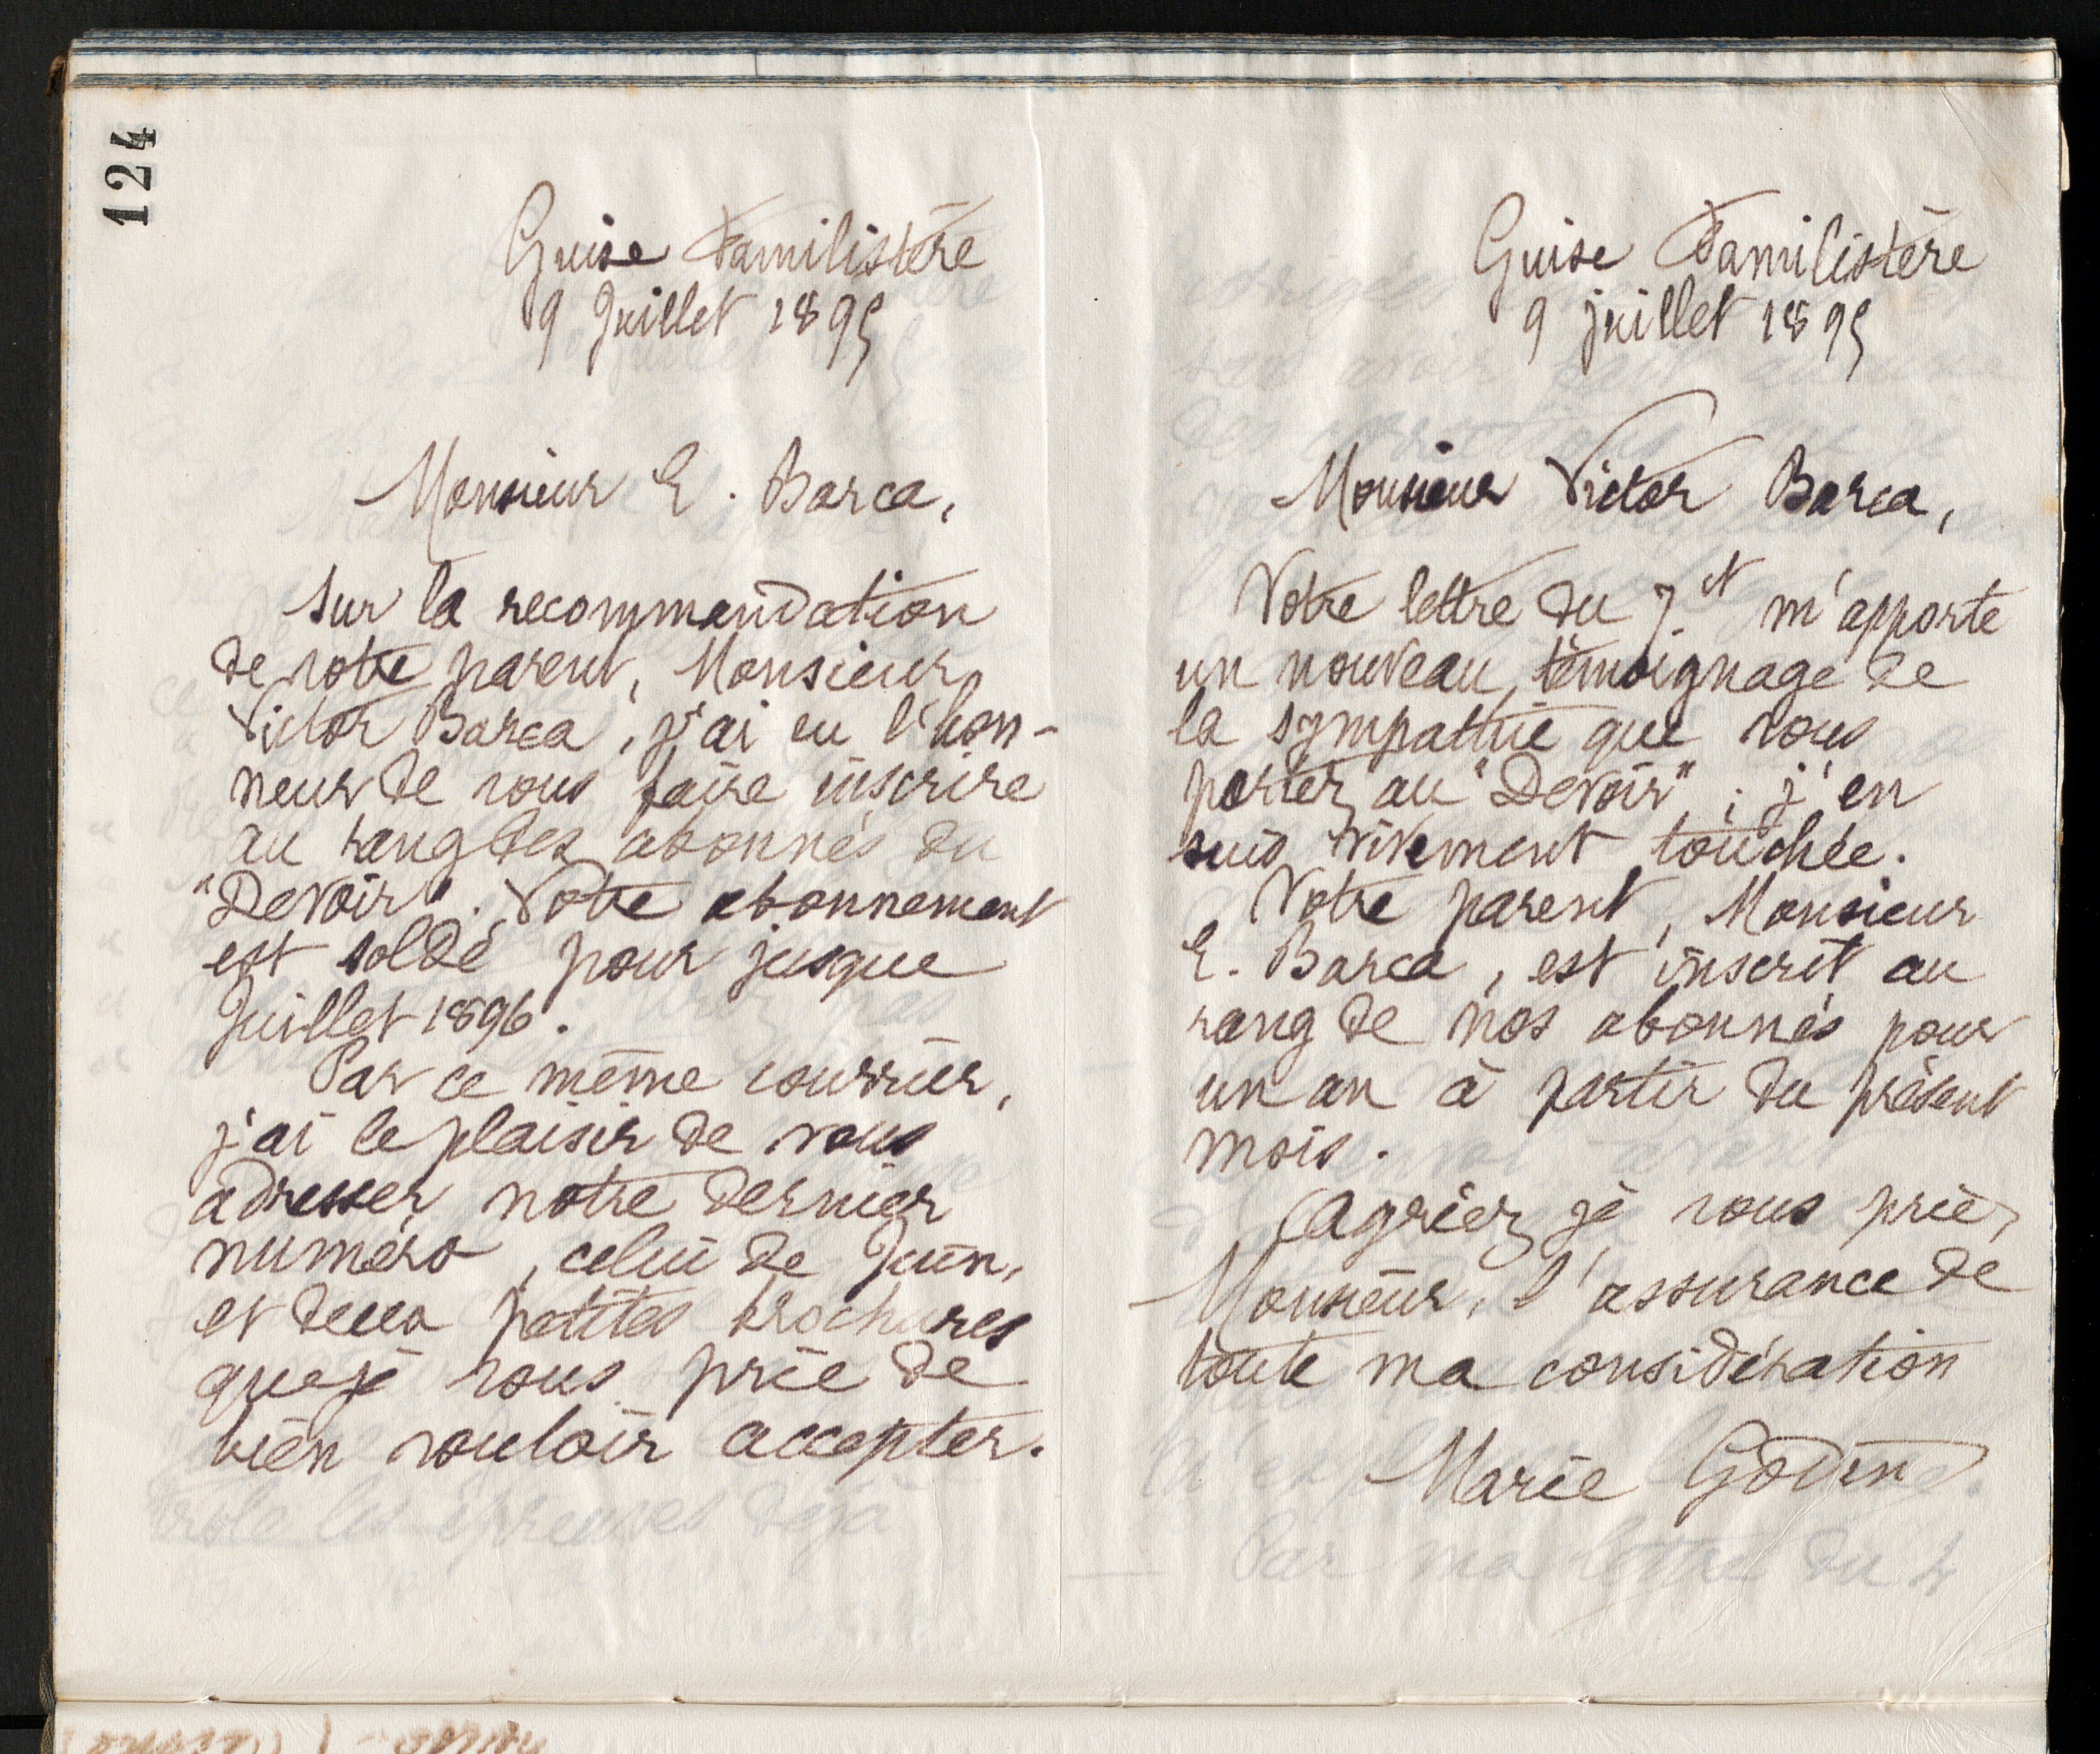 124
Guise Familistère
9 Juillet 1895
Monsieur E. Barca,
Sur la recommandation
de votre parent, Monsieur
Victor Barca, j'ai eu l'hon-
neur de vous faire inscrire
au rang des abonnés du
"Devoir". Votre abonnement
est soldé pour jusque
Juillet 1896.
Par ce même courrier,
j'ai le plaisir de vous
adresser notre dernier
numéro, celui de Juin,
et deux petites brochures
que je vous prie de
bien vouloir accepter.
Guise Familistère
9 juillet 1895
Monsieur Victor Barca,
Votre lettre du 7 ct m'apporte
un nouveau témoignage de
la sympathie que vous
portez au "Devoir"; j'en
suis vivement touchée.
Votre parent, Monsieur
E. Barca, est inscrit au
rang de nos abonnés pour
un an à partir du présent
mois.
Agréez, je vous prie,
Monsieur, l'assurance de
toute ma considération
Marie Godin